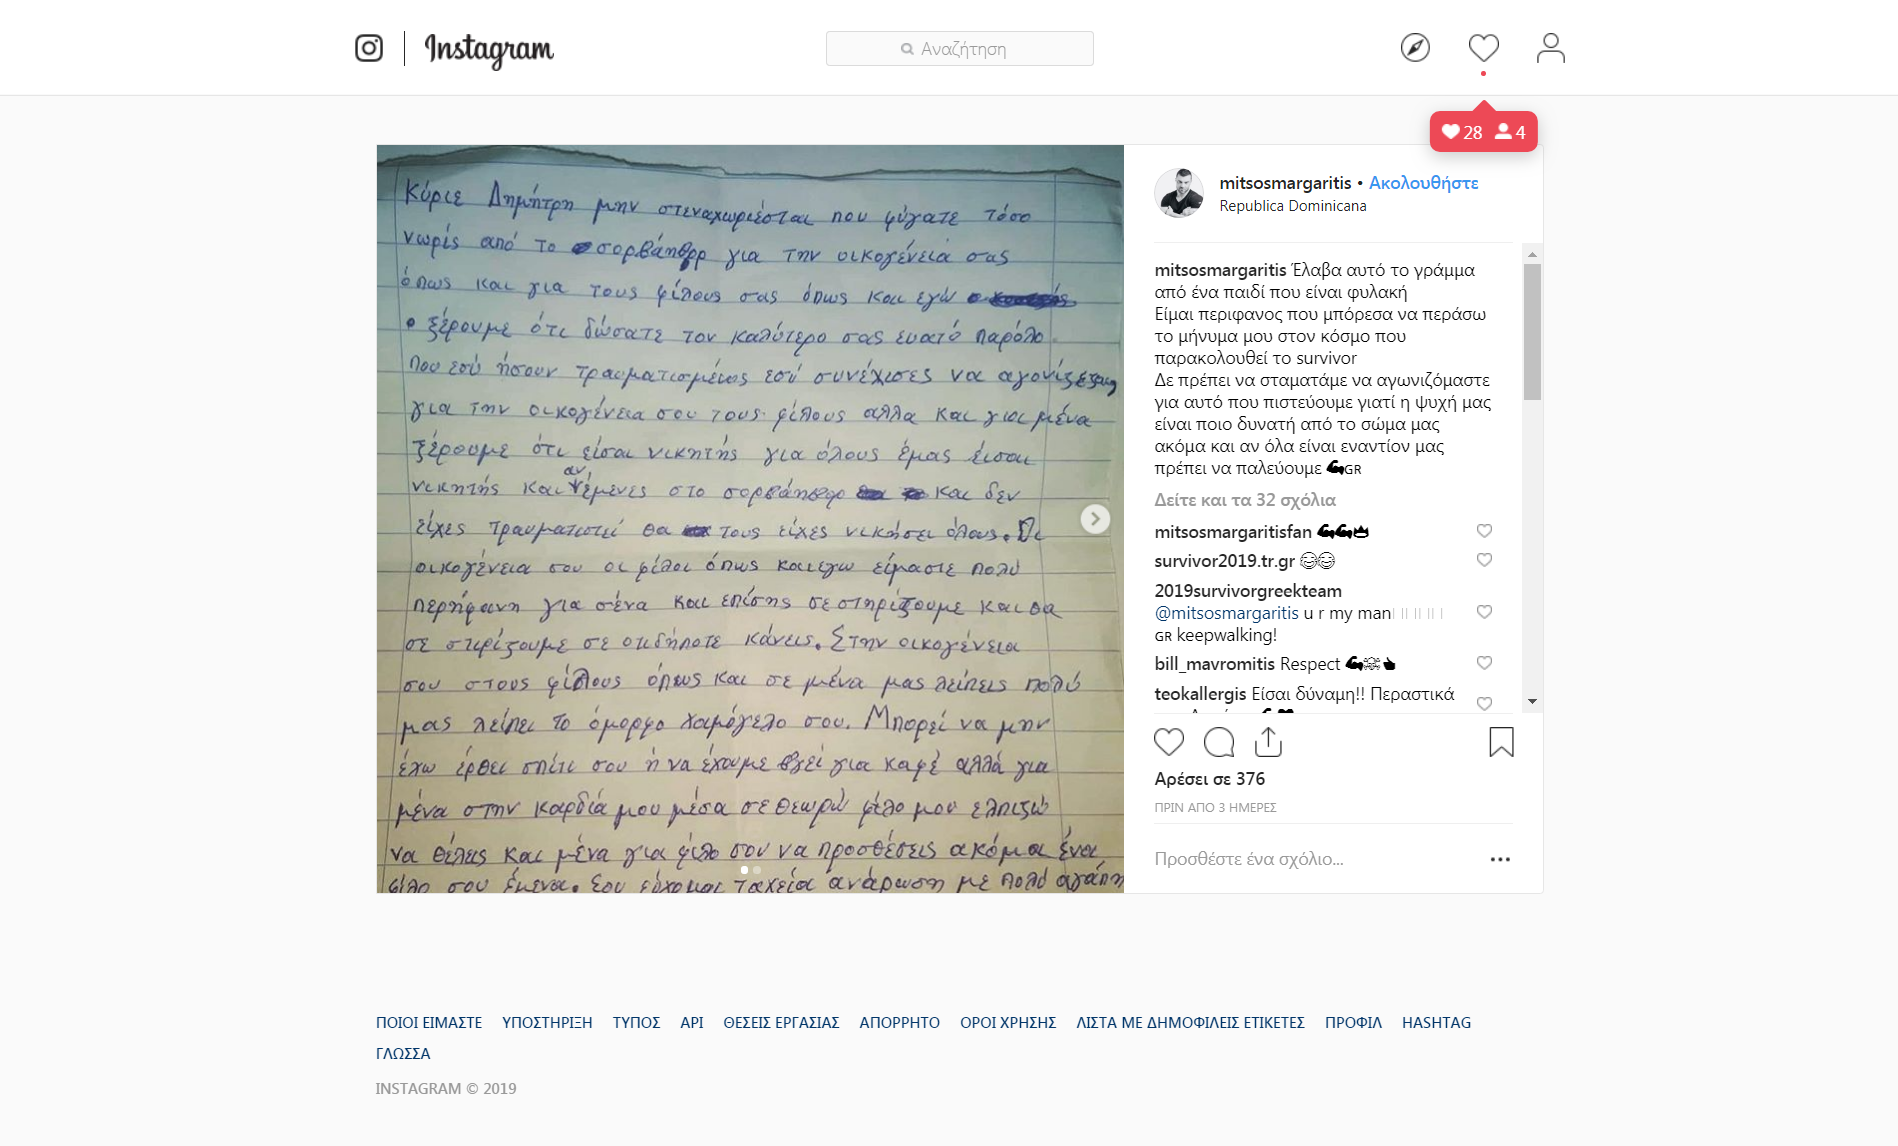 Instagram
Αναζήτηση
28 4
Κύριε Δημήτρη μην στεναχωριέσται που φύγατε τόσο
νωρίς από το σορβάηβορ για την οικογένειά σας
όπως και για τους φίλους σας όπως και εγώ
ξέρουμε ότι δώσατε τον καλύτερο σας ευατό παρόλο
που εσύ ήσουν τραυματισμένος εσύ συνέχισες να αγονίζεσαι
για την οικογένεια σου τους φίλους αλλα και για μένα
ξέρουμε ότι είσαι νικητής για όλους έμας είσαι
νικητής και αν έμενες στο σορβάηβορ και δεν
είχες τραυματιστεί θα τους είχες νικήσει όλους. Οι
οικογένεια σου οι φίλοι όπως και εγω είμαστε πολύ
περήφανη για σένα και επίσης σε στηρίζουμε και θα
σε στιρίζουμε σε οτιδήποτε κάνεις. Στην οικογένεια
σου στους φίλους όπως και σε μένα μας λείπεις πολύ
μας λείπει το όμορφο χαμόγελο σου. Μπορεί να μην
έχω έρθει σπίτι σου ή να έχουμε βγεί για καφέ αλλά για
μένα στην καρδιά μου μέσα σε θεωρώ φίλο μου ελπιζώ
να θέλεις και μένα για φίλο σου να προσθέσεις ακόμα ένα
φίλο σου έμενα. Σου εύχομαι ταχεία ανάρωση με πολύ αγάπη
mitsosmargaritis • Ακολουθήστε
Republica Dominicana
mitsosmargaritis Έλαβα αυτό το γράμμα
από ένα παιδί που είναι φυλακή
Είμαι περιφανος που μπόρεσα να περάσω
το μήνυμα μου στον κόσμο που
παρακολουθεί το survivor
Δε πρέπει να σταματάμε να αγωνιζόμαστε
για αυτό που πιστεύουμε γιατί η ψυχή μας
είναι ποιο δυνατή από το σώμα μας
ακόμα και αν όλα είναι εναντίον μας
πρέπει να παλεύουμε 💪GR
Δείτε και τα 32 σχόλια
mitsosmargaritisfan 💪💪👑
survivor2019.tr.gr 😊😊
2019survivorgreekteam
@mitsosmargaritis u r my man
GR keepwalking!
bill_mavromitis Respect
teokallergis Είσαι δύναμη!! Περαστικά
Αρέσει σε 376
ΠΡΙΝ ΑΠΟ 3 ΗΜΕΡΕΣ
Προσθέστε ένα σχόλιο...
ΠΟΙΟΙ ΕΙΜΑΣΤΕ ΥΠΟΣΤΗΡΙΞΗ ΤΥΠΟΣ API ΘΕΣΕΙΣ ΕΡΓΑΣΙΑΣ ΑΠΟΡΡΗΤΟ ΟΡΟΙ ΧΡΗΣΗΣ ΛΙΣΤΑ ΜΕ ΔΗΜΟΦΙΛΕΙΣ ΕΤΙΚΕΤΕΣ ΠΡΟΦΙΛ HASHTAG
ΓΛΩΣΣΑ
INSTAGRAM © 2019